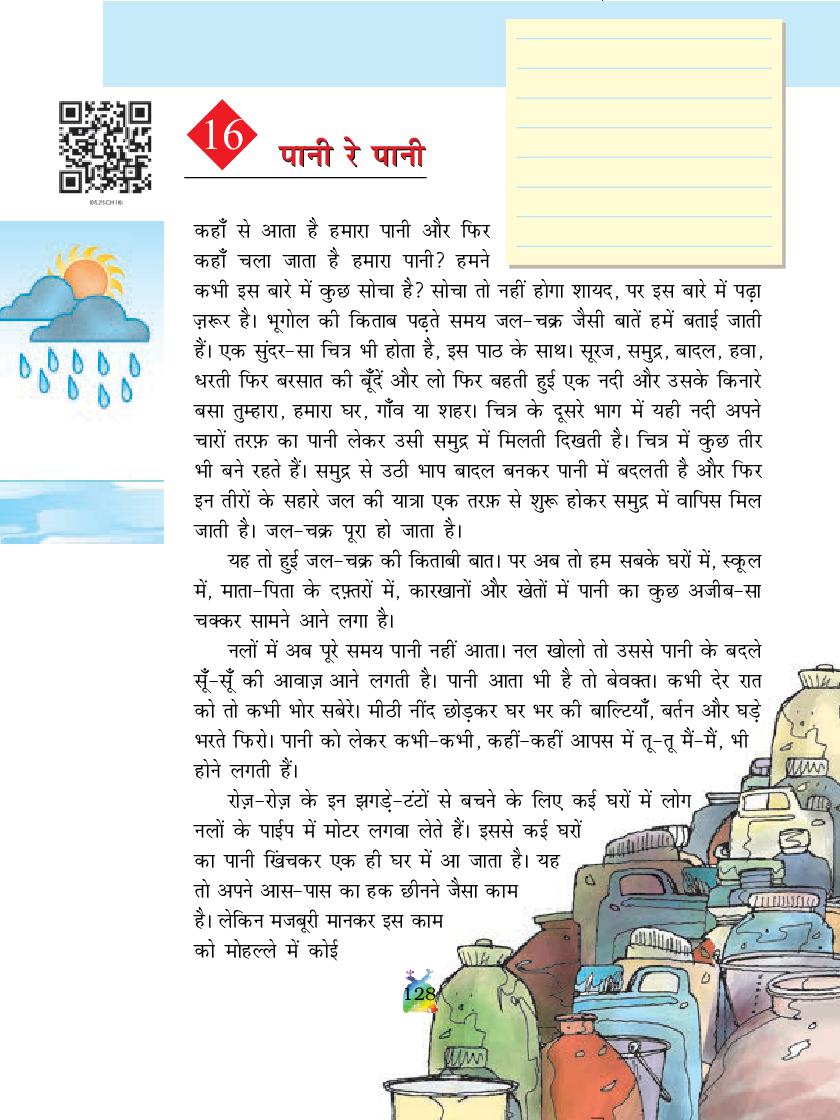 0525CH16
16
पानी रे पानी
कहाँ से आता है हमारा पानी और फिर
कहाँ चला जाता है हमारा पानी? हमने
कभी इस बारे में कुछ सोचा है? सोचा तो नहीं होगा शायद, पर इस बारे में पढ़ा
ज़रूर है। भूगोल की किताब पढ़ते समय जल-चक्र जैसी बातें हमें बताई जाती
हैं। एक सुंदर-सा चित्र भी होता है, इस पाठ के साथ। सूरज, समुद्र, बादल, हवा,
धरती फिर बरसात की बूँदें और लो फिर बहती हुई एक नदी और उसके किनारे
बसा तुम्हारा, हमारा घर, गाँव या शहर। चित्र के दूसरे भाग में यही नदी अपने
चारों तरफ़ का पानी लेकर उसी समुद्र में मिलती दिखती है। चित्र में कुछ तीर
भी बने रहते हैं। समुद्र से उठी भाप बादल बनकर पानी में बदलती है और फिर
इन तीरों के सहारे जल की यात्रा एक तरफ़ से शुरू होकर समुद्र में वापिस मिल
जाती है। जल-चक्र पूरा हो जाता है।
यह तो हुई जल-चक्र की किताबी बात। पर अब तो हम सबके घरों में, स्कूल
में, माता-पिता के दफ़्तरों में, कारखानों और खेतों में पानी का कुछ अजीब-सा
चक्कर सामने आने लगा है।
नलों में अब पूरे समय पानी नहीं आता। नल खोलो तो उससे पानी के बदले
सूँ-सूँ की आवाज़ आने लगती है। पानी आता भी है तो बेवक्त। कभी देर रात
को तो कभी भोर सबेरे। मीठी नींद छोड़कर घर भर की बाल्टियाँ, बर्तन और घड़े
भरते फिरो। पानी को लेकर कभी-कभी, कहीं-कहीं आपस में तू-तू मैं-मैं, भी
होने लगती हैं।
रोज़-रोज़ के इन झगड़े-टंटों से बचने के लिए कई घरों में लोग
नलों के पाईप में मोटर लगवा लेते हैं। इससे कई घरों
का पानी खिंचकर एक ही घर में आ जाता है। यह
तो अपने आस-पास का हक छीनने जैसा काम
है। लेकिन मजबूरी मानकर इस काम
को मोहल्ले में कोई
128